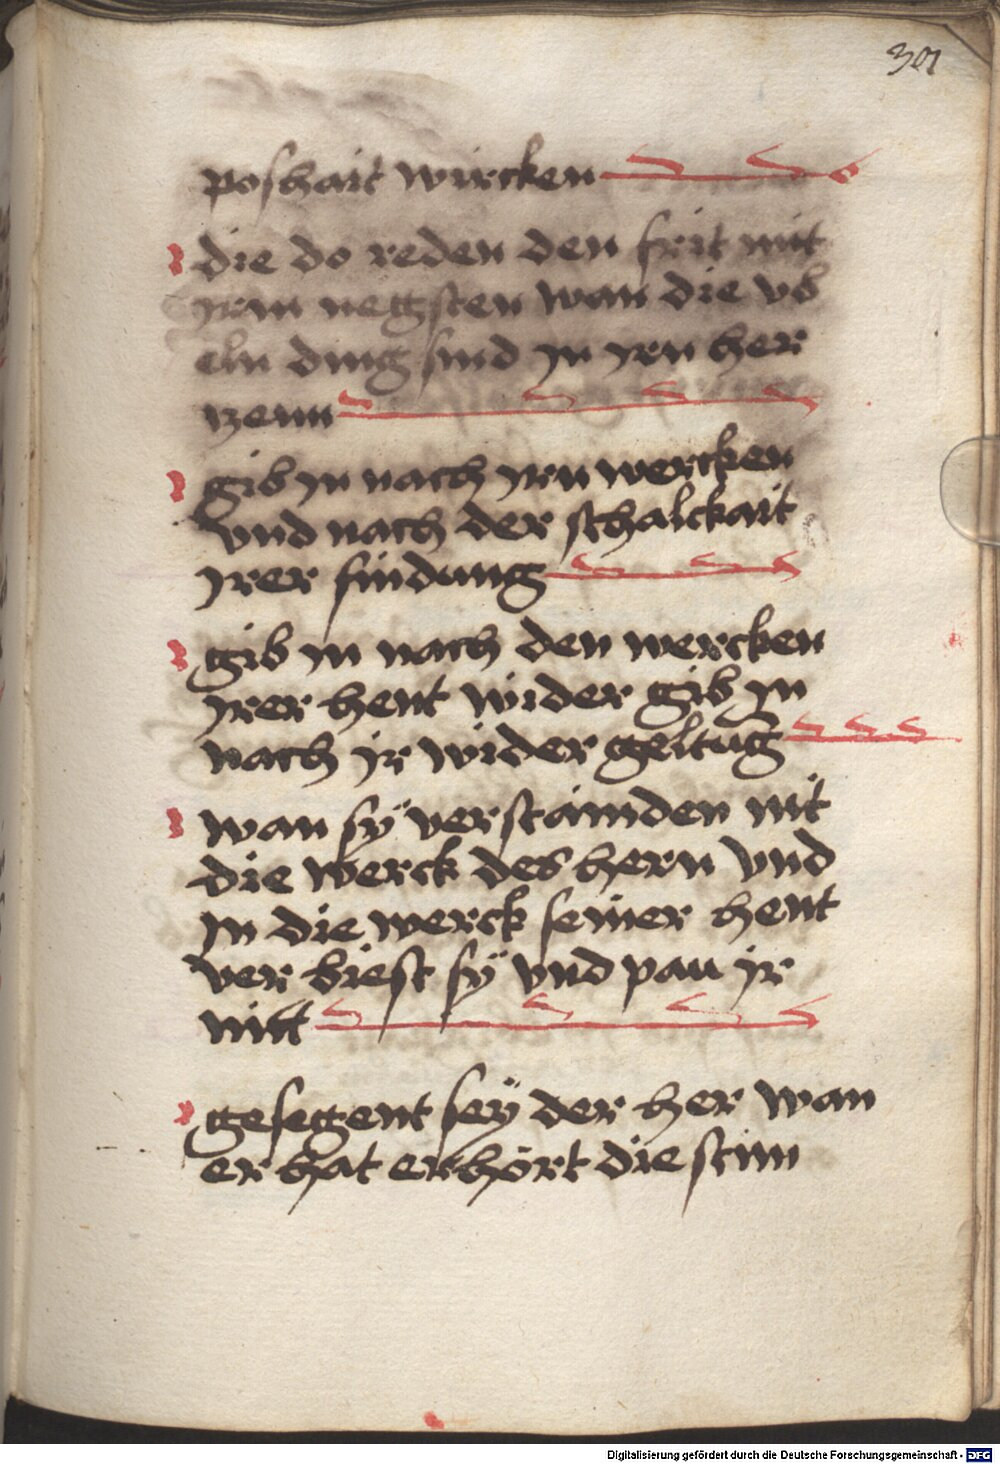 301
poshait wircken
die do reden den frit mit
yrm negsten wan die vb
eln ding sind jn yrn her
tzenn
gib jn nach yrn wercken
vnd nach der schalckait
yrer findung
gib jn nach den wercken
yrer hent wider gib jn
nach jr wider geltūg
wan sÿ verstainden nit
die werck des hern vnd
jn die werck seiner hent
ver biest sÿ vnd pau jr
nitt
gesegent seÿ der her wan
er hat erhört die stim
Digitalisierung gefördert durch die Deutsche Forschungsgemeinschaft - DFG